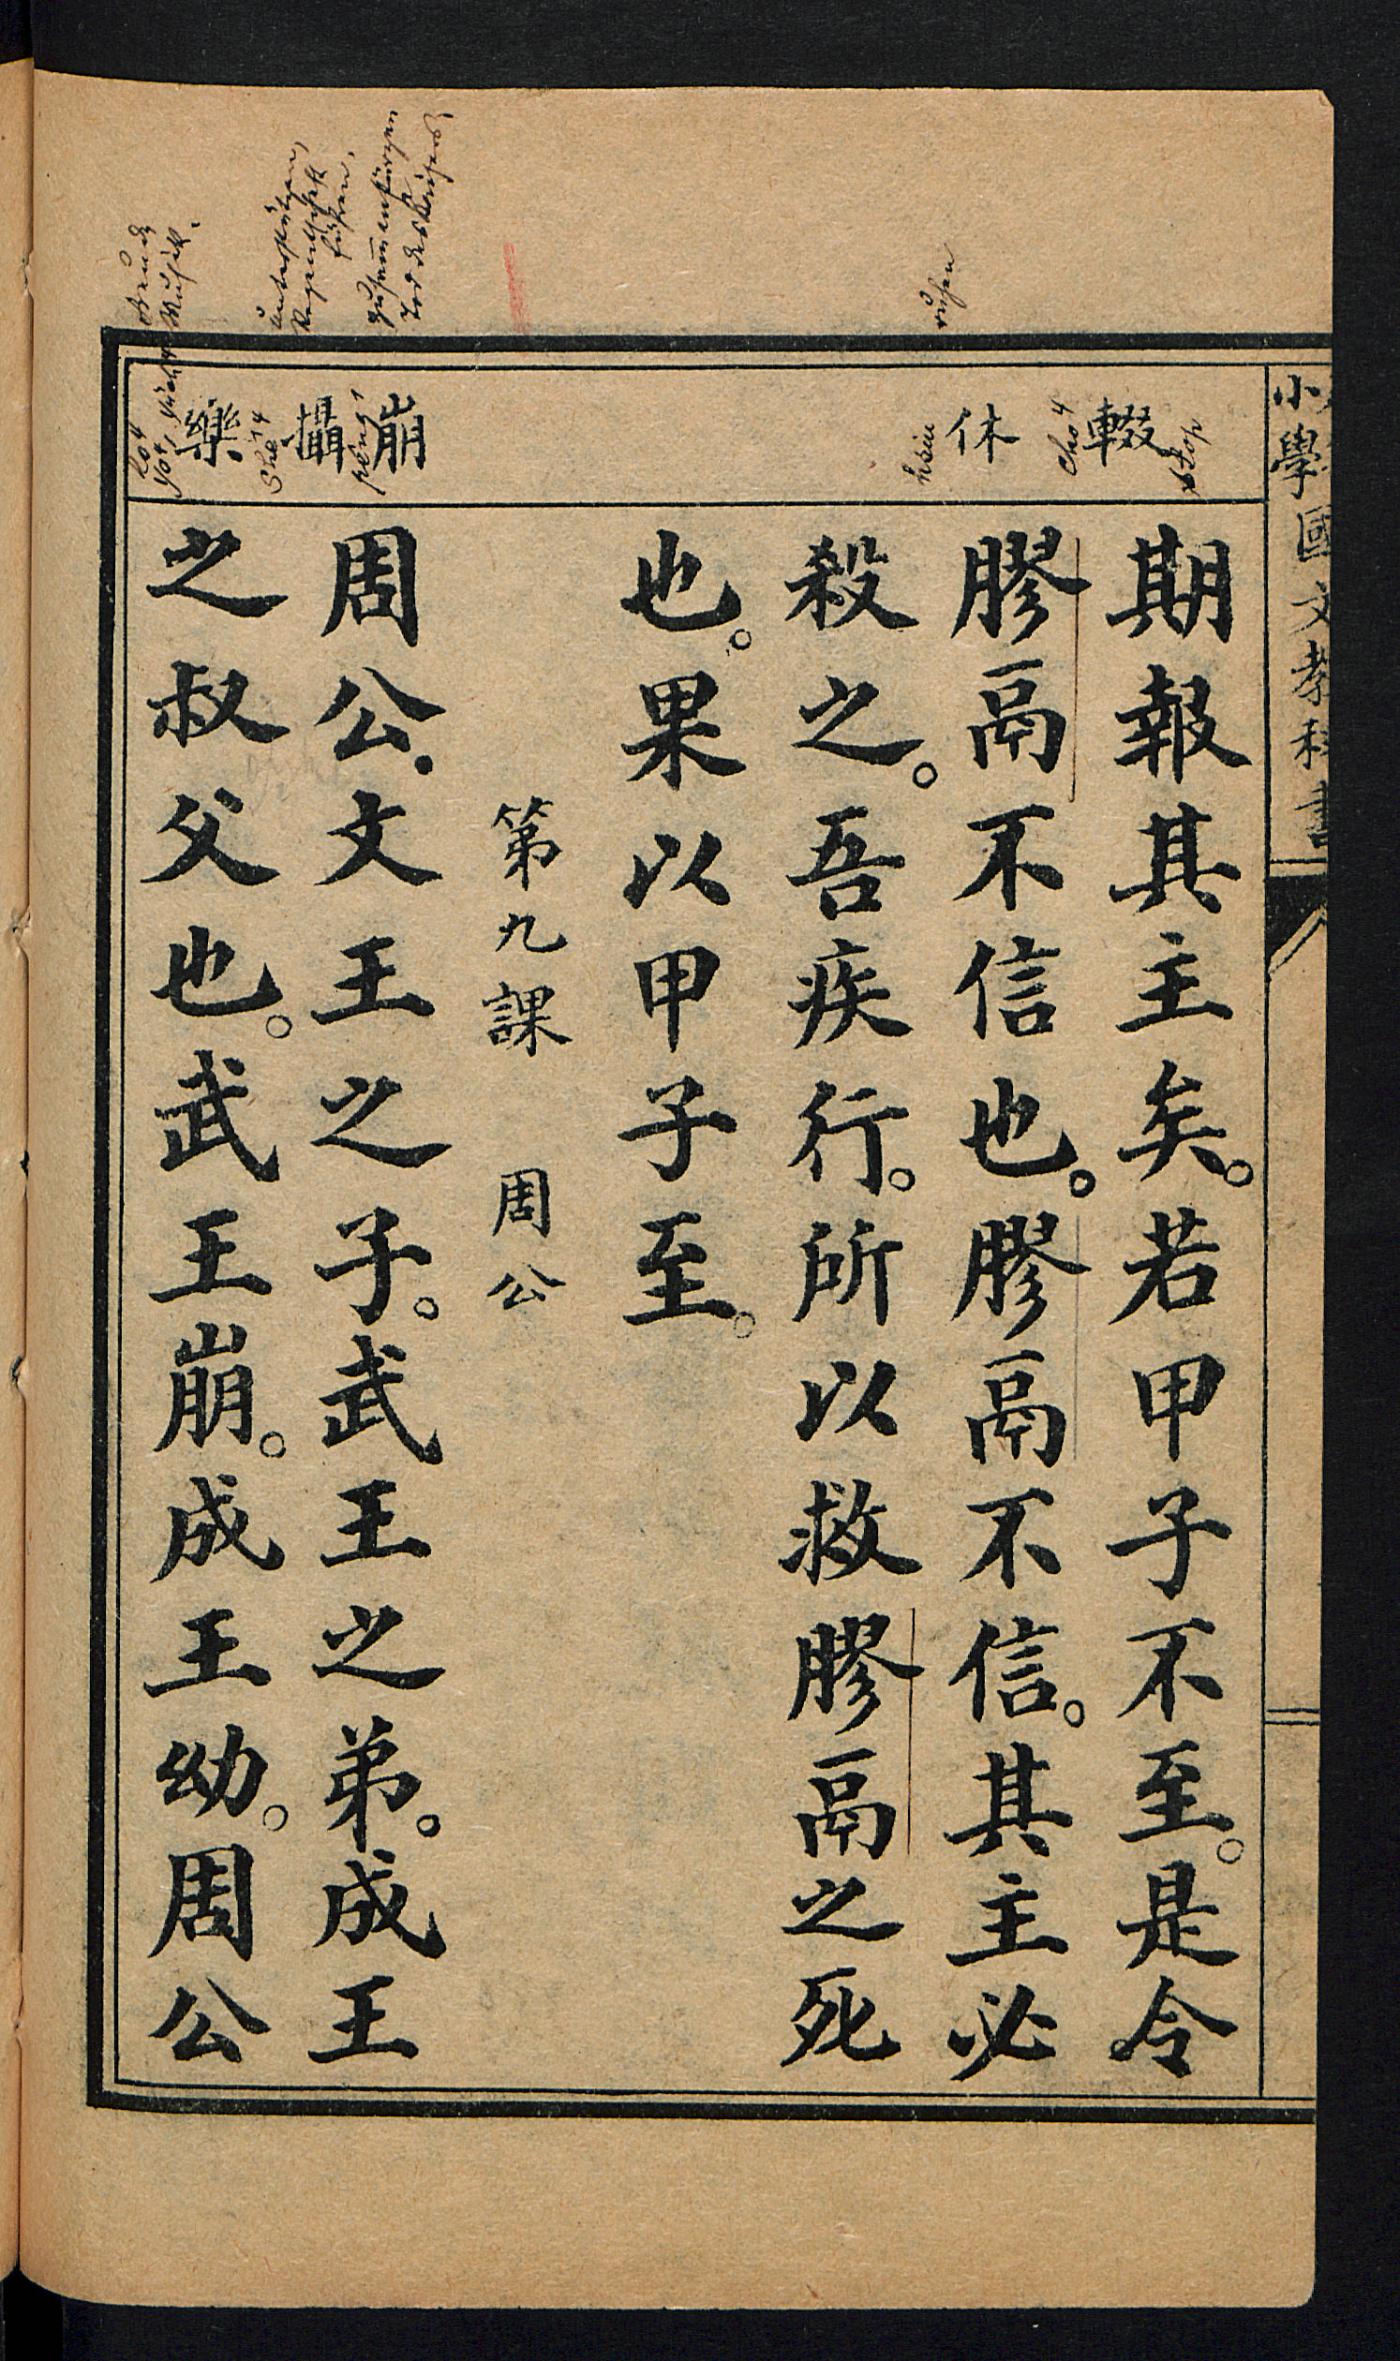 小學國文教科書
輟
休
崩
攝
樂
期報其主矣。若甲子不至。是令
膠鬲不信也。膠鬲不信。其主必
殺之。吾疾行。所以救膠鬲之死
也。果以甲子至。
第九課　周公
周公.文王之子。武王之弟。成王
之叔父也。武王崩。成王幼。周公
cho4
stop
hsiu
ruhen
pêng1
zusammenstürzen
Tod des Kaisers
shê4
unterstützen,
Regentschaft
führen.
lo4
yo4
Freude
Musik.